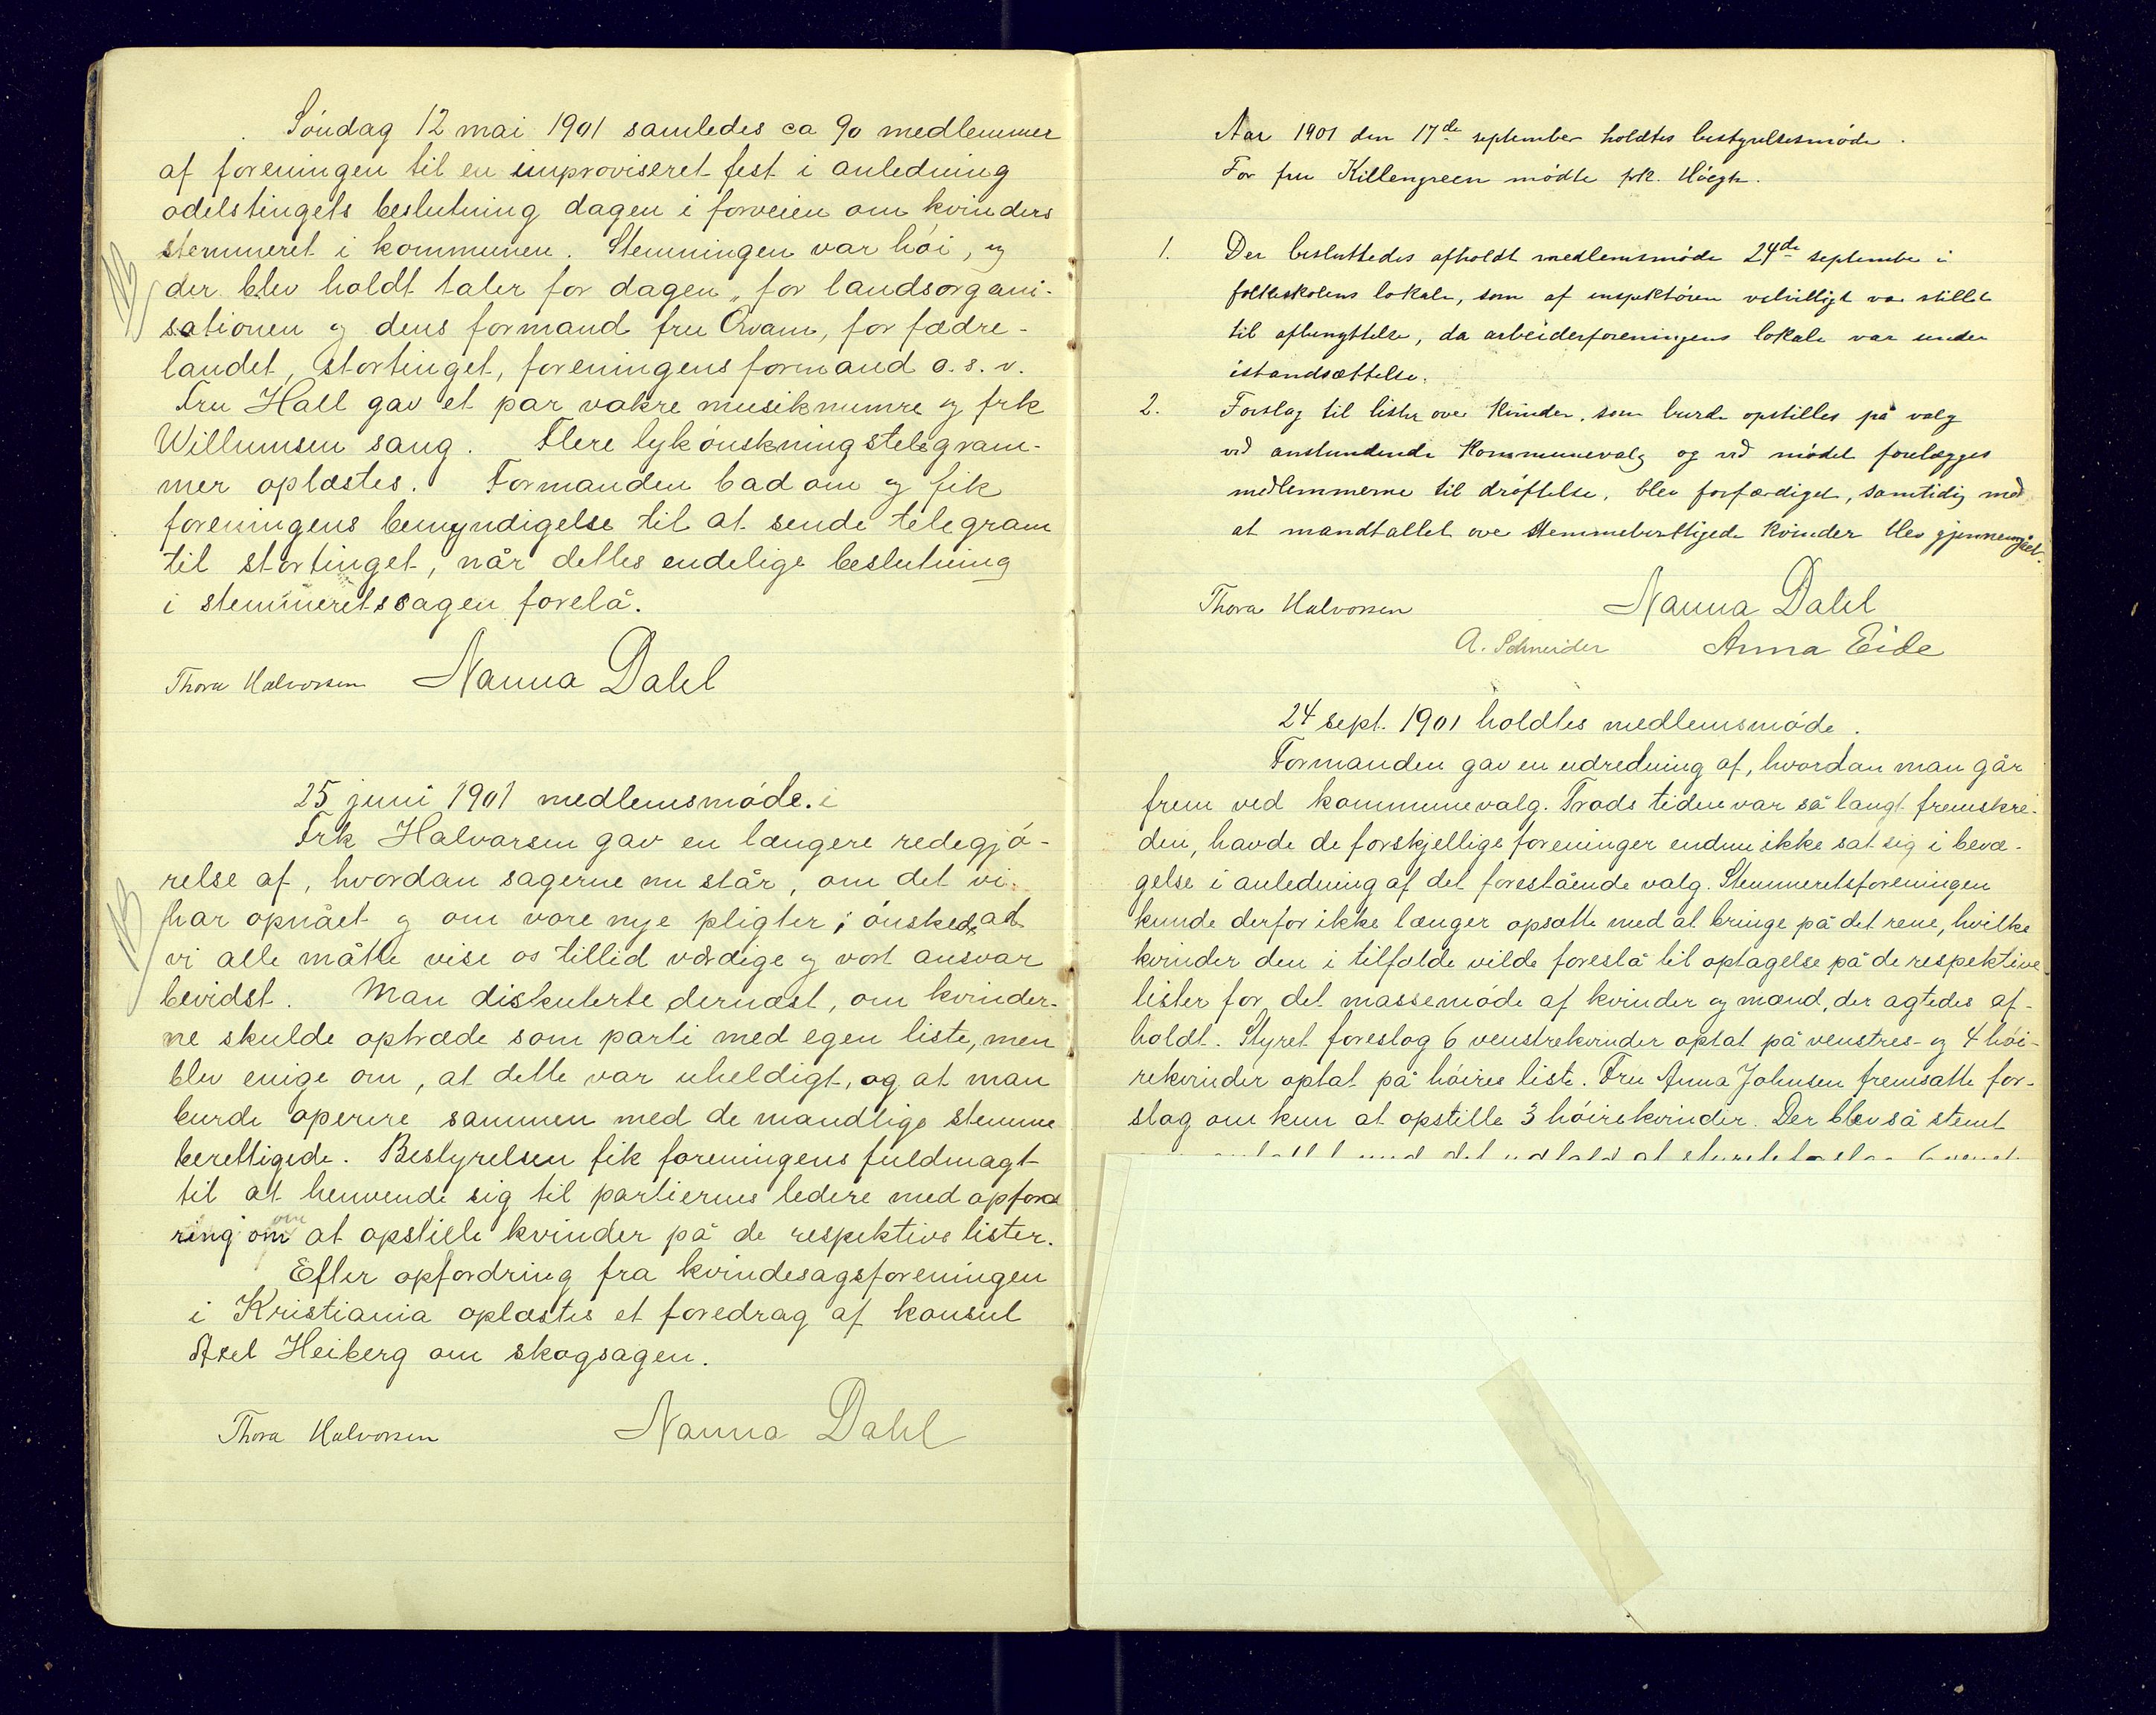 Söndag 12 mai 1901 samledes ca 90 medlemmer
af foreningen til en improviseret fest i anledning
odelstingets beslutning dagen i forveien om kvinders
stemmeret i kommunen. Stemningen var hói, og
der blev holdt taler for dagen, for landsorgani-
sationen og dens formand fru Qvam, for fædre-
landet, stortinget, foreningens formand o.s.v.
Fru Hall gav et par vakre musiknumre og frk
Willumsen sang. Flere lykónskningstelegram-
mer oplæstes. Formanden bad om og fik
foreningens bemyndigelse til at sende telegram
til stortinget, når dettes endelige beslutning
i stemmeretssagen forelå.
Thora Halvorsen Nanna Dahl
NB
25 juni 1901 medlemsmóde.
Frk Halvorsen gav en længere redegjó-
relse af, hvordan sagerne nu står, om det vi
har opnået og om vore nye pligter; ónskede at
vi alle måtte vise os tillid værdige og vort ansvar
bevidst. Man diskuterte dernæst, om kvinder-
ne skulde optræde som parti med egen liste, men
blev enige om, at dette var uheldigt, og at man
burde operere sammen med de mandlige stemme
berettigede. Bestyrelsen fik foreningens fuldmagt
til at henvende sig til partiernes ledere med opford
ring om at opstille kvinder på de respektive lister.
Efter opfordring fra kvindesagsforeningen
i Kristiania oplæstes et foredrag af konsul
Axel Heiberg om skogsagen.
Thora Halvorsen Nanna Dahl
NB
Aar 1901 den 17de september holdtes bestyrelsesmöde.
For fru Killengreen mödte frk. Höegh.
1. Der besluttedes afholdt medlemsmöde 24de september i
folkeskolens lokale, som af inspektören velvilligt var stillet
til afbenyttelse, da arbeiderforeningens lokale var under
istandsættelse.
2. Forslag til lister over kvinder, som burde opstilles på valg
ved anstundende kommunevalg og ved mödet forelægges
medlemmerne til dröftelse, blev forfærdiget, samtidig med
at mandtallet over stemmeberettigede kvinder blev gjennemgået.
Thora Halvorsen Nanna Dahl
A. Schneider Anna Eide
24 sept. 1901 holdtes medlemsmóde.
Formanden gav en udredning af, hvordan man går
frem ved kommunevalg. Trods tiden var så langt fremskre-
den, havde de forskjellige foreninger endnu ikke sat sig i bevæ-
gelse i anledning af det forestående valg. Stemmeretsforeningen
kunde derfor ikke længer opsætte med at bringe på det rene, hvilke
kvinder den i tilfælde vilde foreslå til optagelse på de respektive
lister for det massemóde af kvinder og mænd, der agtedes af-
holdt. Styret foreslog 6 venstrekvinder optat på venstres- og 4 hói-
rekvinder optat på hóires liste. Fru Anna Johnsen fremsatte for-
slag om kun at opstille 3 hóirekvinder. Der blev så stemt